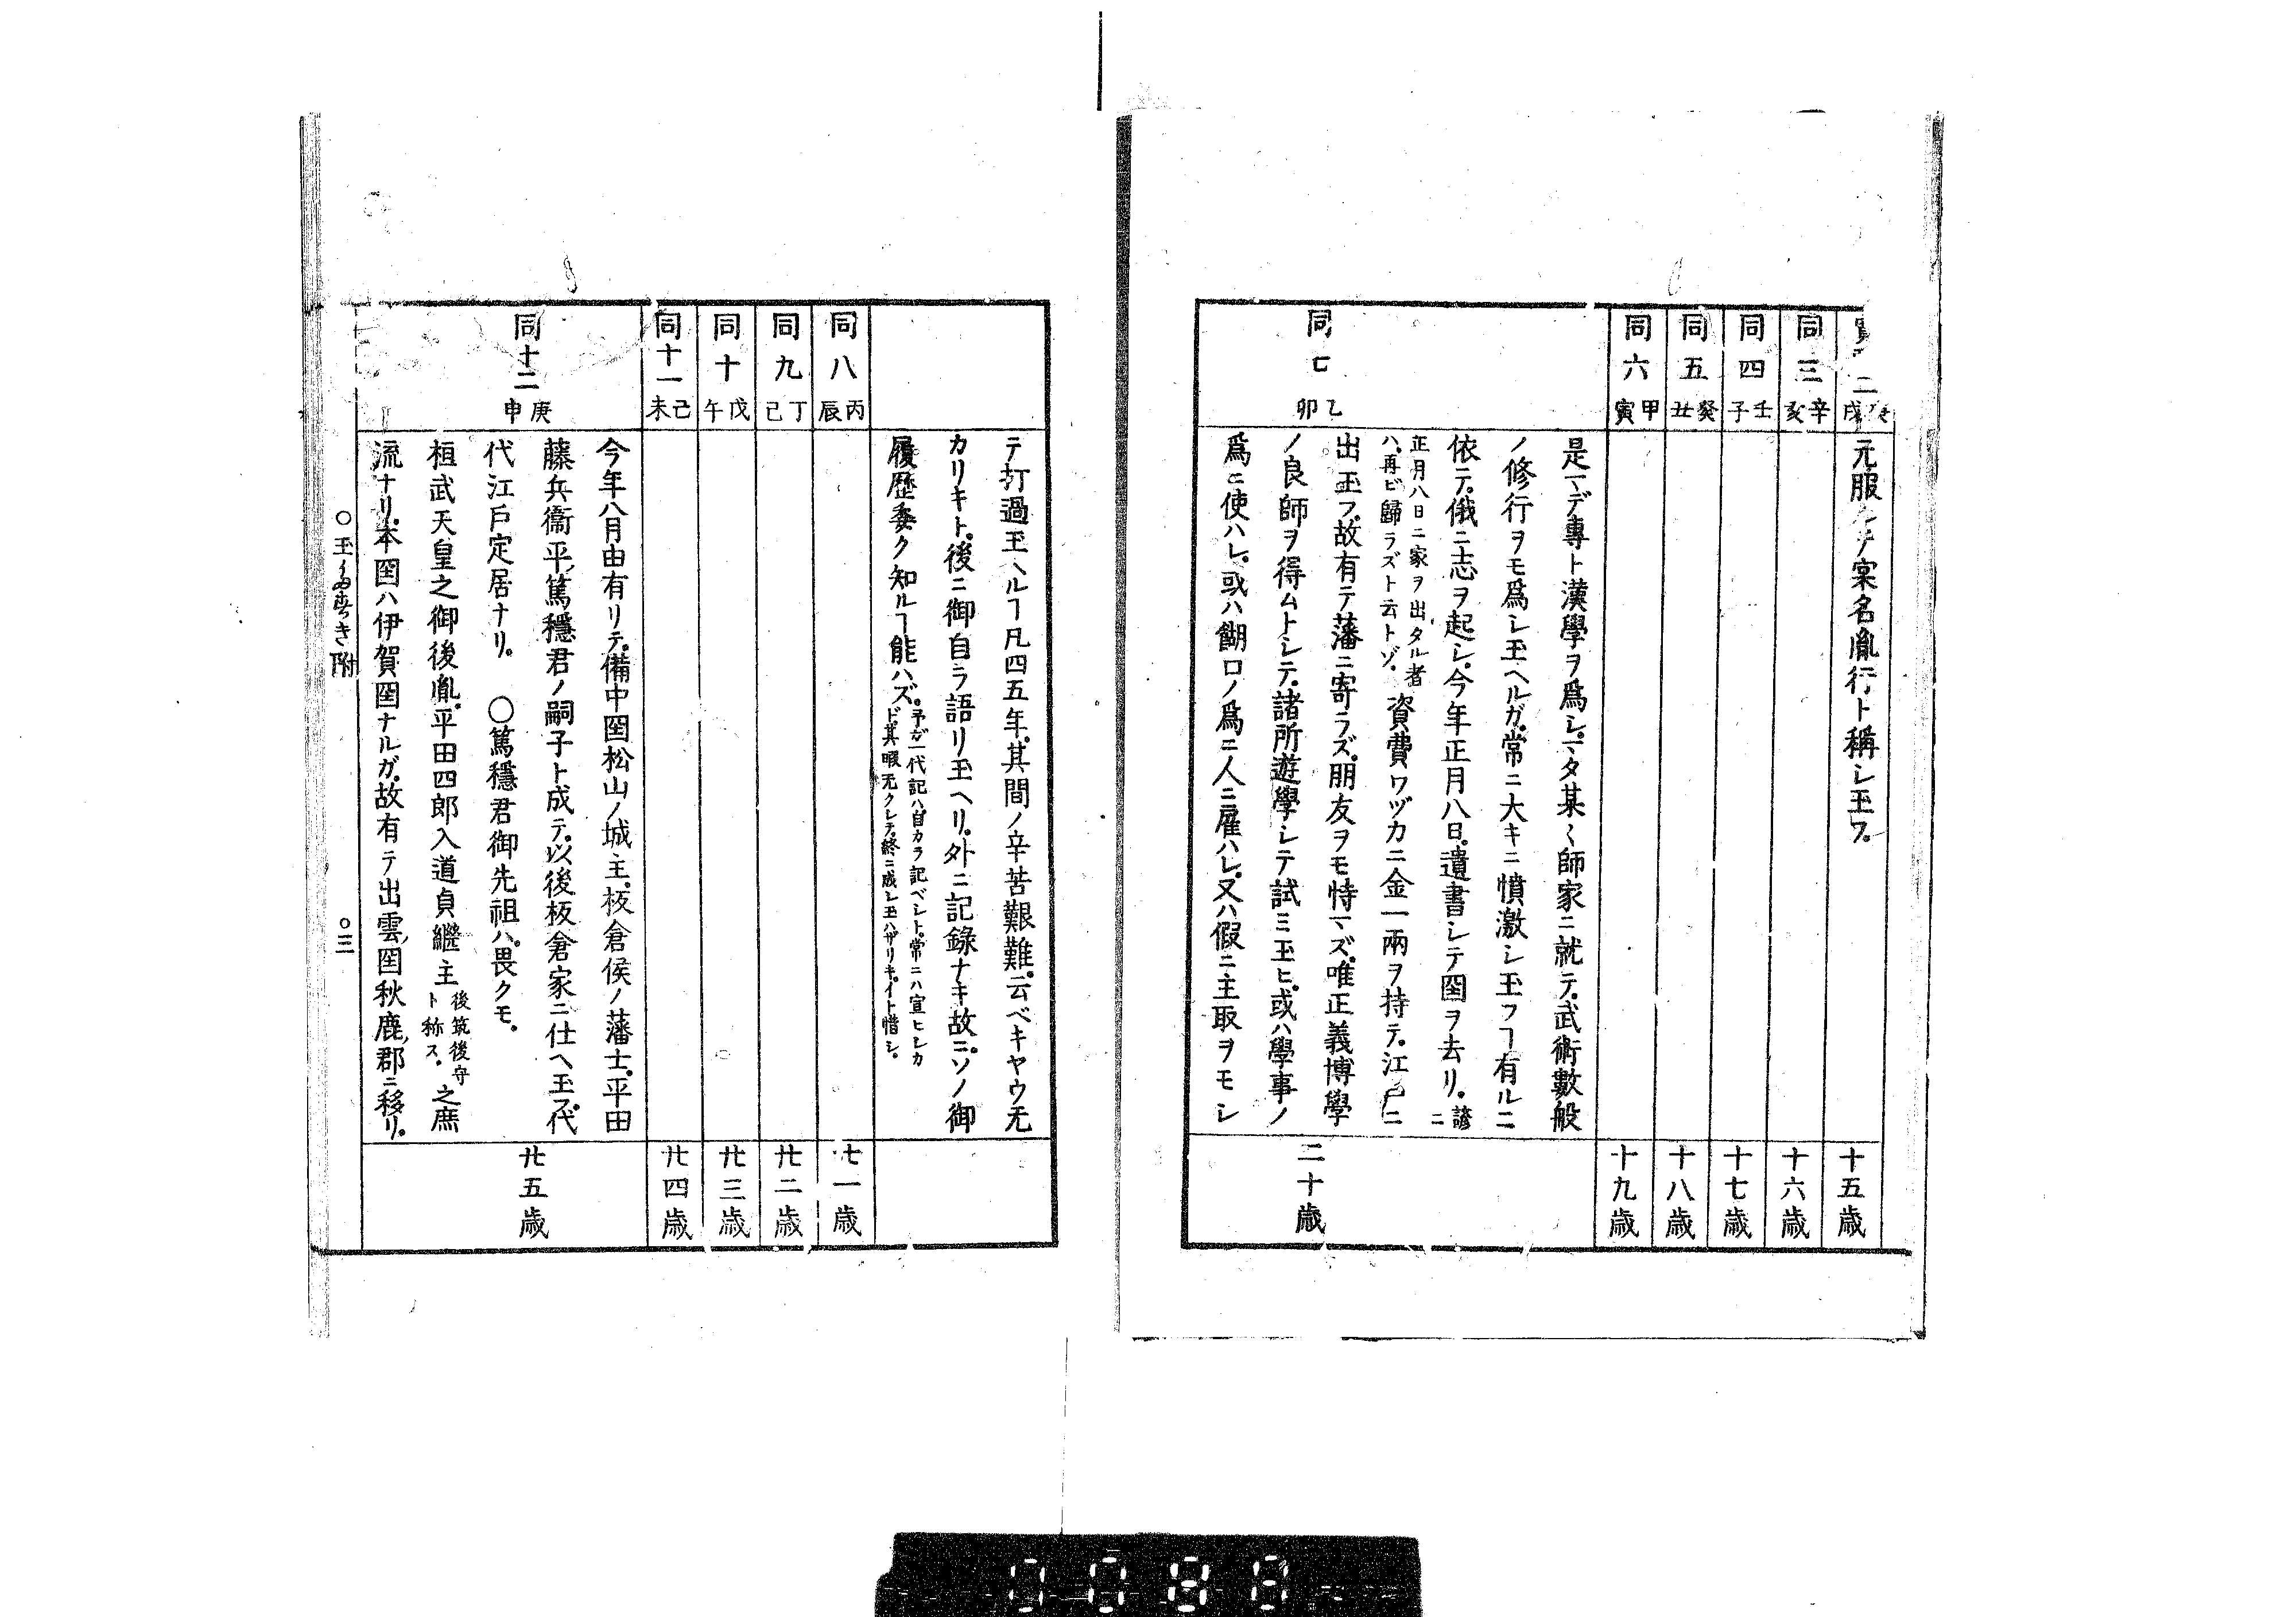 二 戌
元服シテ実名胤行ト稱シ玉フ。
十五歳
同三 辛亥
十六歳
同四 壬子
十七歳
同五 癸丑
十八歳
同六 甲寅
十九歳
同七 乙卯
是マデ專ト漢學ヲ爲シ。マタ某〱師家ニ就テ。武術數般
ノ修行ヲモ爲シ玉ヘルガ。常ニ大キニ憤激シ玉フヿ有ルニ
依テ。俄ニ志ヲ起シ。今年正月八日。遺書シテ国ヲ去リ。諺ニ
正月八日ニ家ヲ出タル者
ハ。再ビ歸ラズト云トゾ。
資費ワヅカニ金一兩ヲ持テ。江戸ニ
出玉フ。故有テ藩ニ寄ラズ。朋友ヲモ恃マズ。唯正義博學
ノ良師ヲ得ムトシテ。諸所遊學シテ試ミ玉ヒ。或ハ學事ノ
爲ニ使ハレ。或ハ餬口ノ爲ニ人ニ雇ハレ。又ハ假ニ主取ヲモシ
二十歳
テ打過玉ヘルヿ凡四五年。其間ノ辛苦艱難。云ベキヤウ无
カリキト。後ニ御自ラ語リ玉ヘリ。外ニ記錄ナキ故ニ。ソノ御
履歴委ク知ルヿ能ハズ。
予ガ一代記ハ自カラ記ベシト。常ニハ宣ヒシカ
ド。其暇无クシテ。終ニ成シ玉ハザリキ。イト惜シ。
同八 丙辰
廿一歳
同九 丁巳
廿二歳
同十 戊午
廿三歳
同十一 己未
廿四歳
同十二 庚申
今年八月由有リテ。備中国松山ノ城主。板倉侯ノ藩士。平田
藤兵衞平篤穩君ノ嗣子ト成テ。以後板倉家ニ仕ヘ玉フ。代
代江戸定居ナリ。 ○篤穩君御先祖ハ。畏クモ。
桓武天皇之御後胤。平田四郎入道貞繼主
後筑後守
ト称ス。
之庶
流ナリ。本国ハ伊賀国ナルガ。故有テ出雲国秋鹿郡ニ移リ。
廿五歳
○玉多すき附
○三